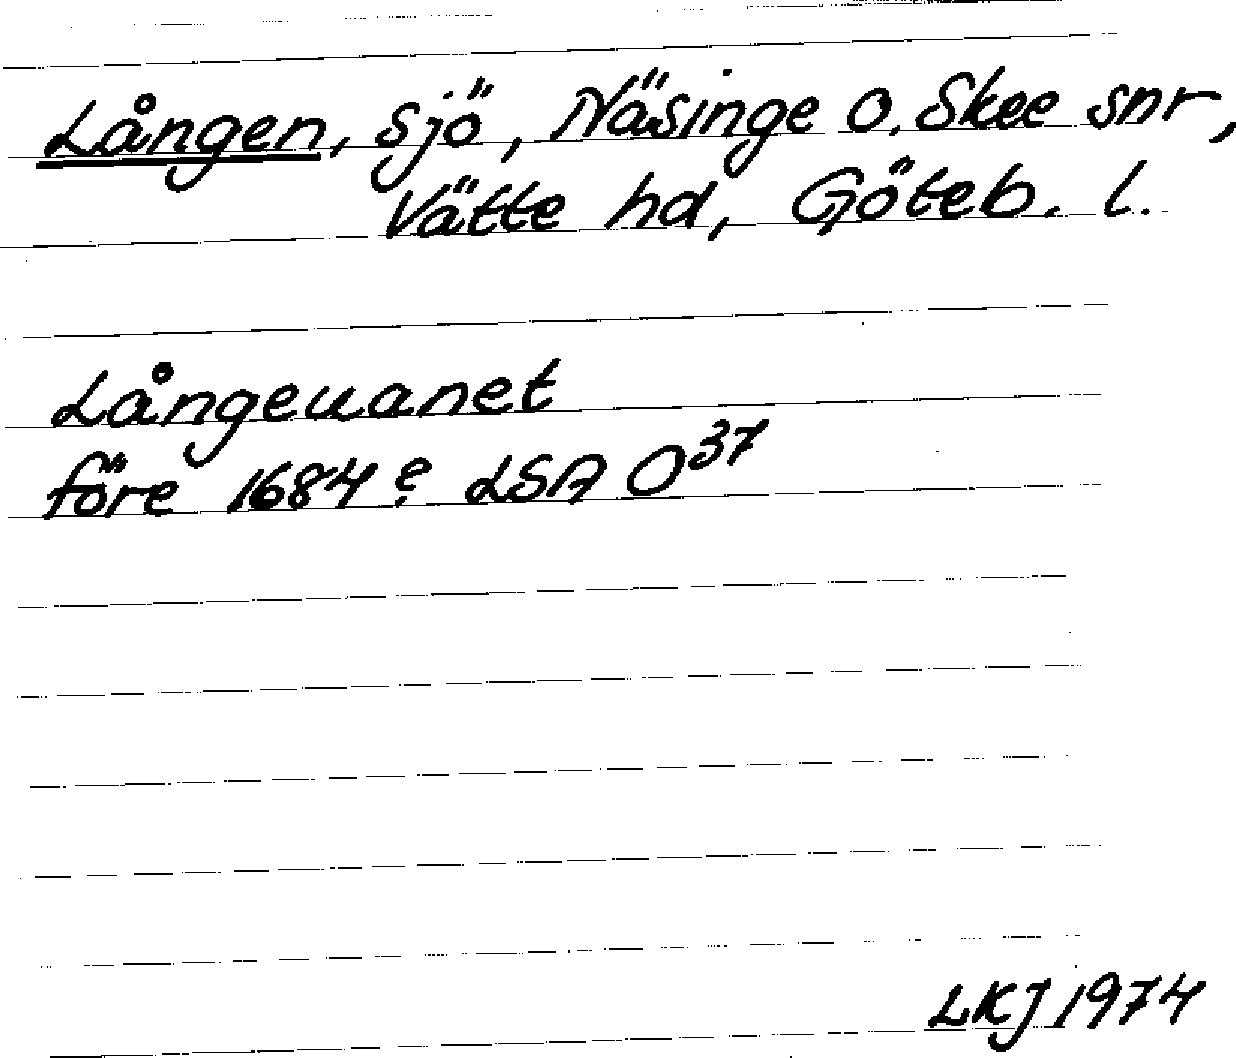 Lången, sjö, Näsinge o. Skee snr,
Vätte hd, Göteb. l.
Långeuanet
före 1684? LSA O37
LKJ 1974